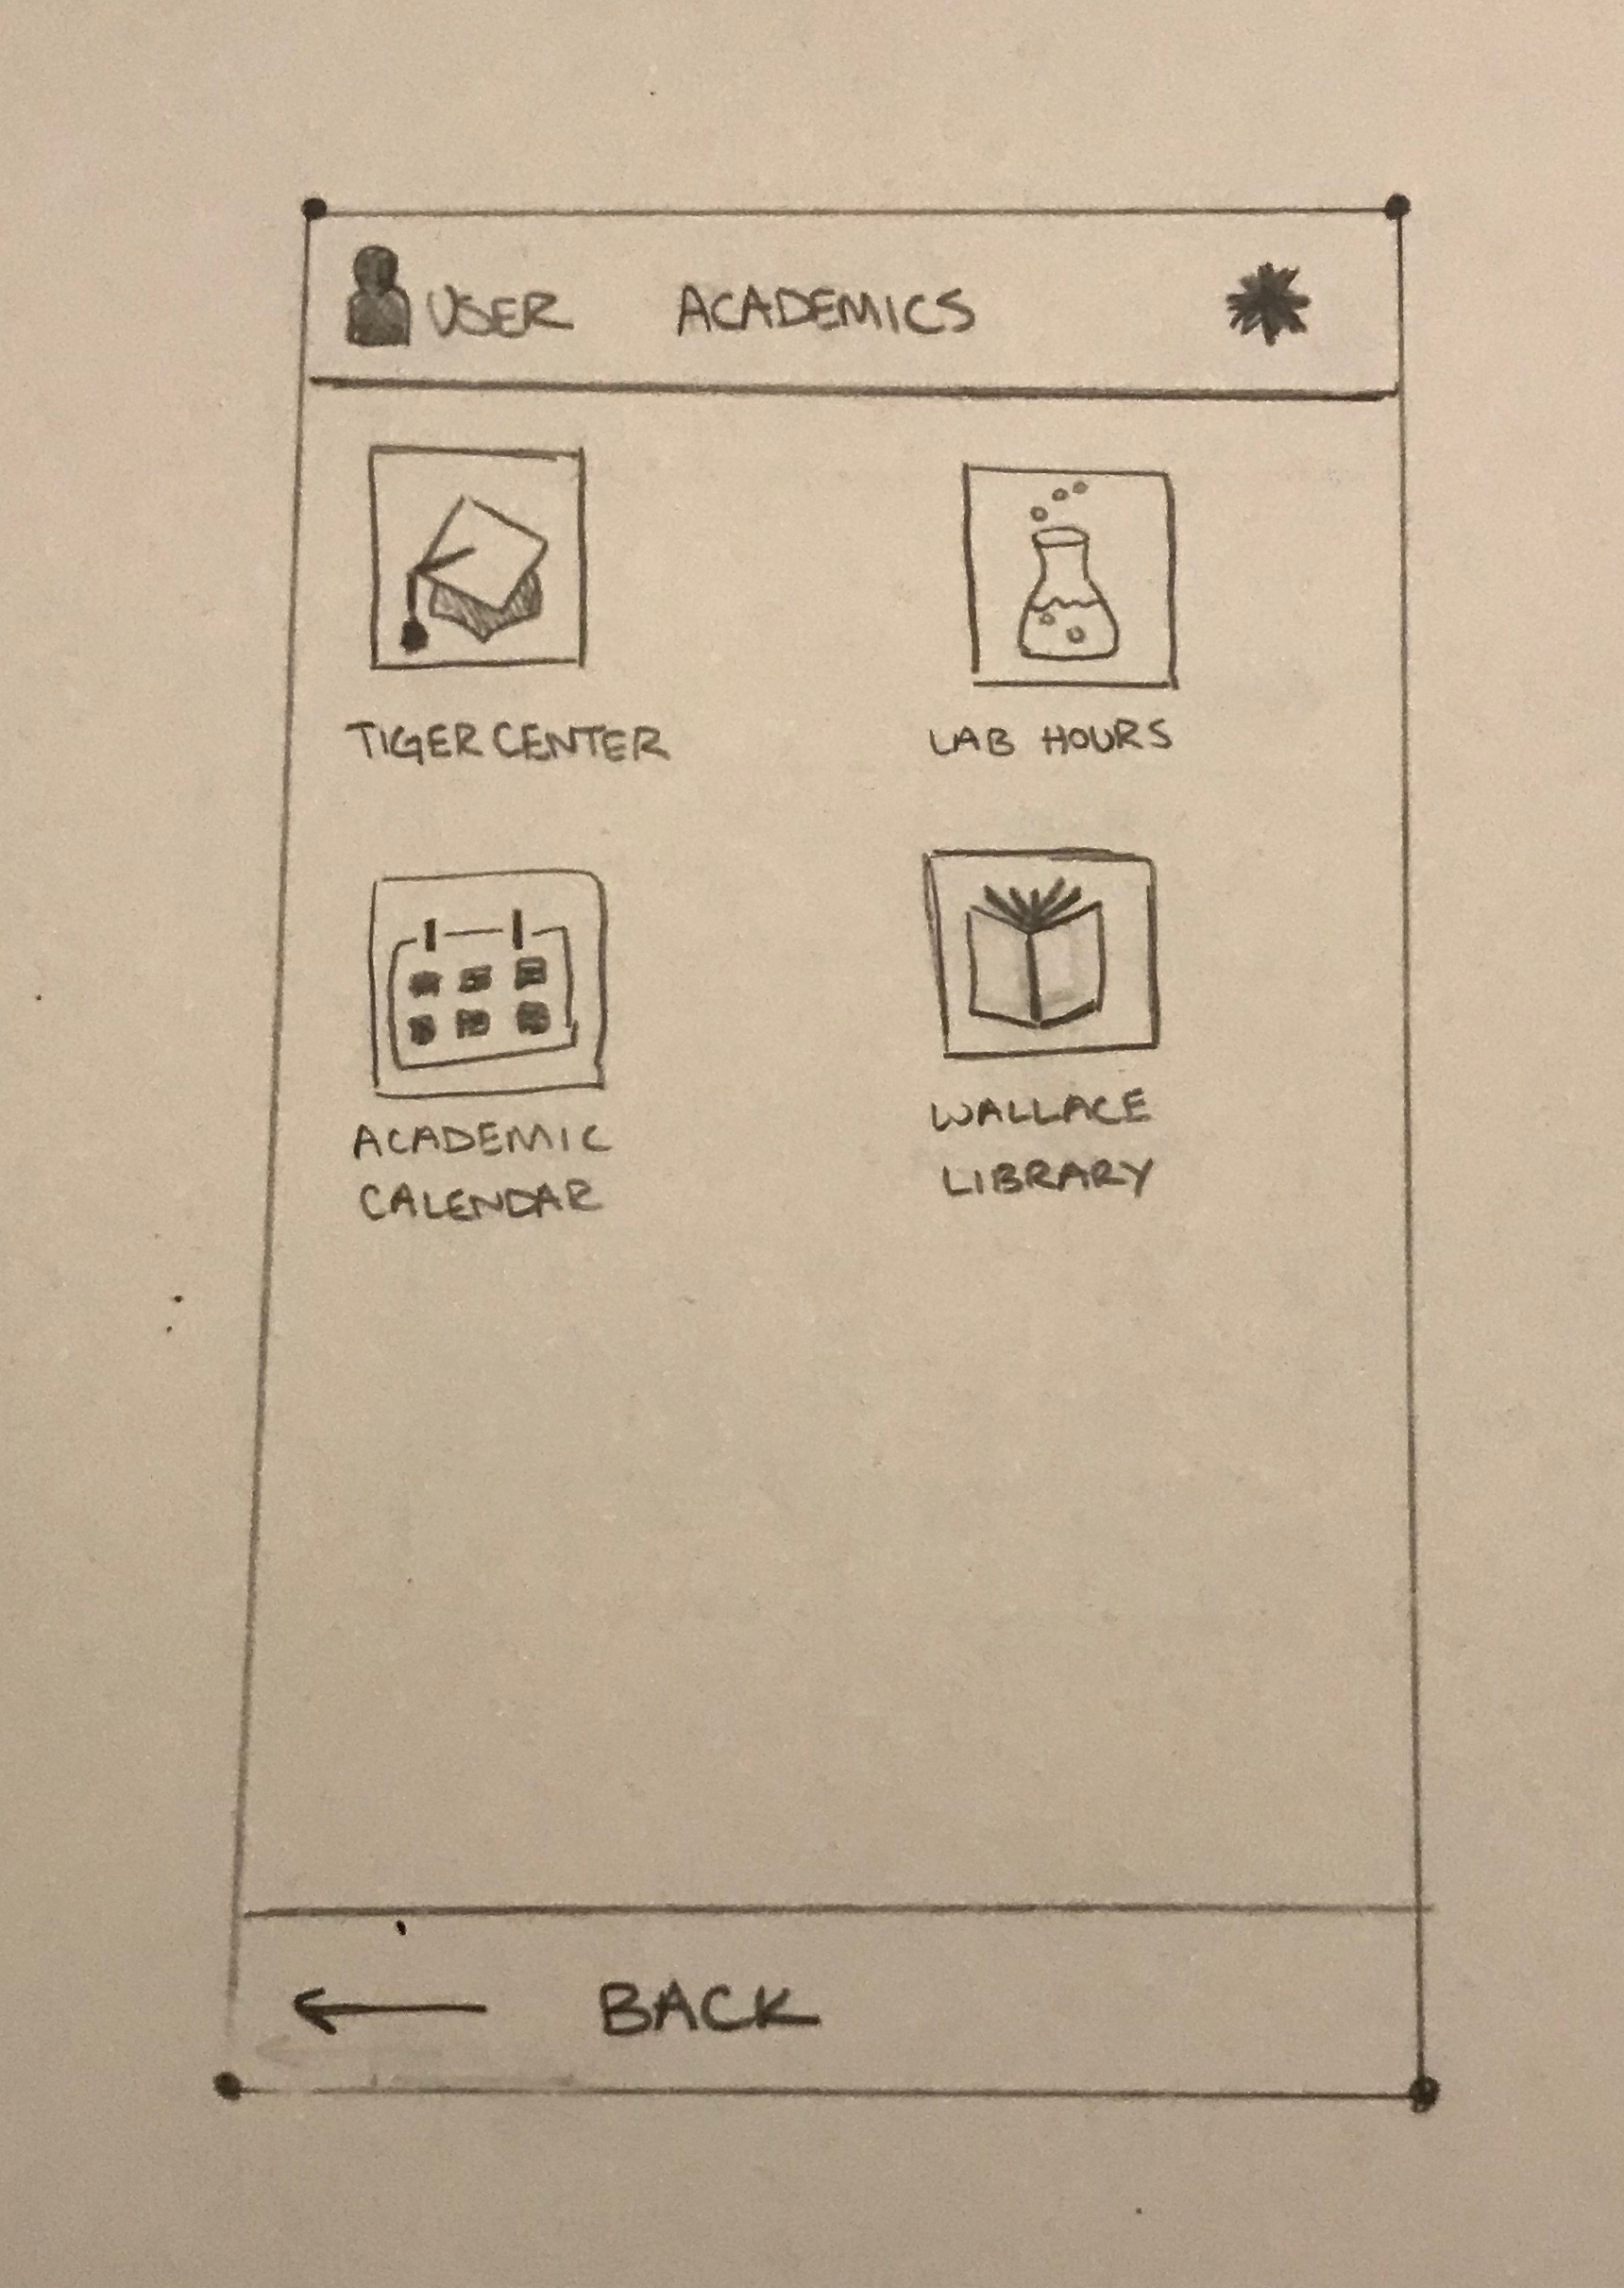 USER ACADEMICS
TIGER CENTER
LAB HOURS
ACADEMIC
CALENDAR
WALLACE
LIBRARY
BACK